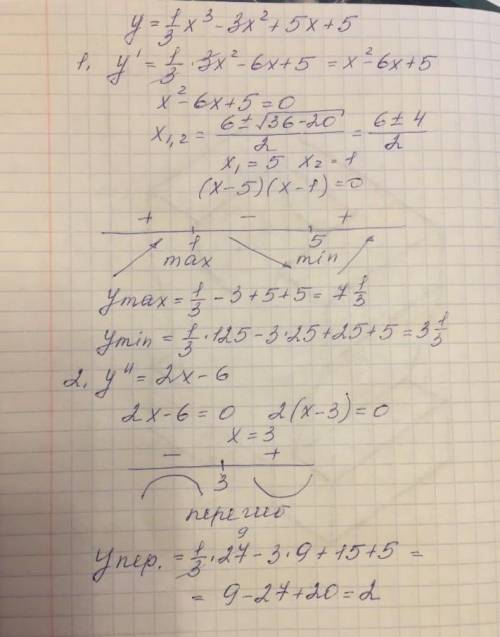 y = 1/3 x³ - 3x² + 5x + 5
1, y' = 1/3 · 3x² - 6x + 5 = x² - 6x + 5
x² - 6x + 5 = 0
x₁,₂ = (6 ± √(36 - 20))/2 = (6 ± 4)/2
x₁ = 5 x₂ = 1
(x - 5)(x - 1) = 0
+ − +
1 5
max min
ymax = 1/3 - 3 + 5 + 5 = 7 1/3
ymin = 1/3 · 125 - 3 · 25 + 25 + 5 = 3 1/3
2, y'' = 2x - 6
2x - 6 = 0 2(x - 3) = 0
x = 3
− +
3
перегиб
9
yпер. = 1/3 · 27 - 3 · 9 + 15 + 5 =
= 9 - 27 + 20 = 2